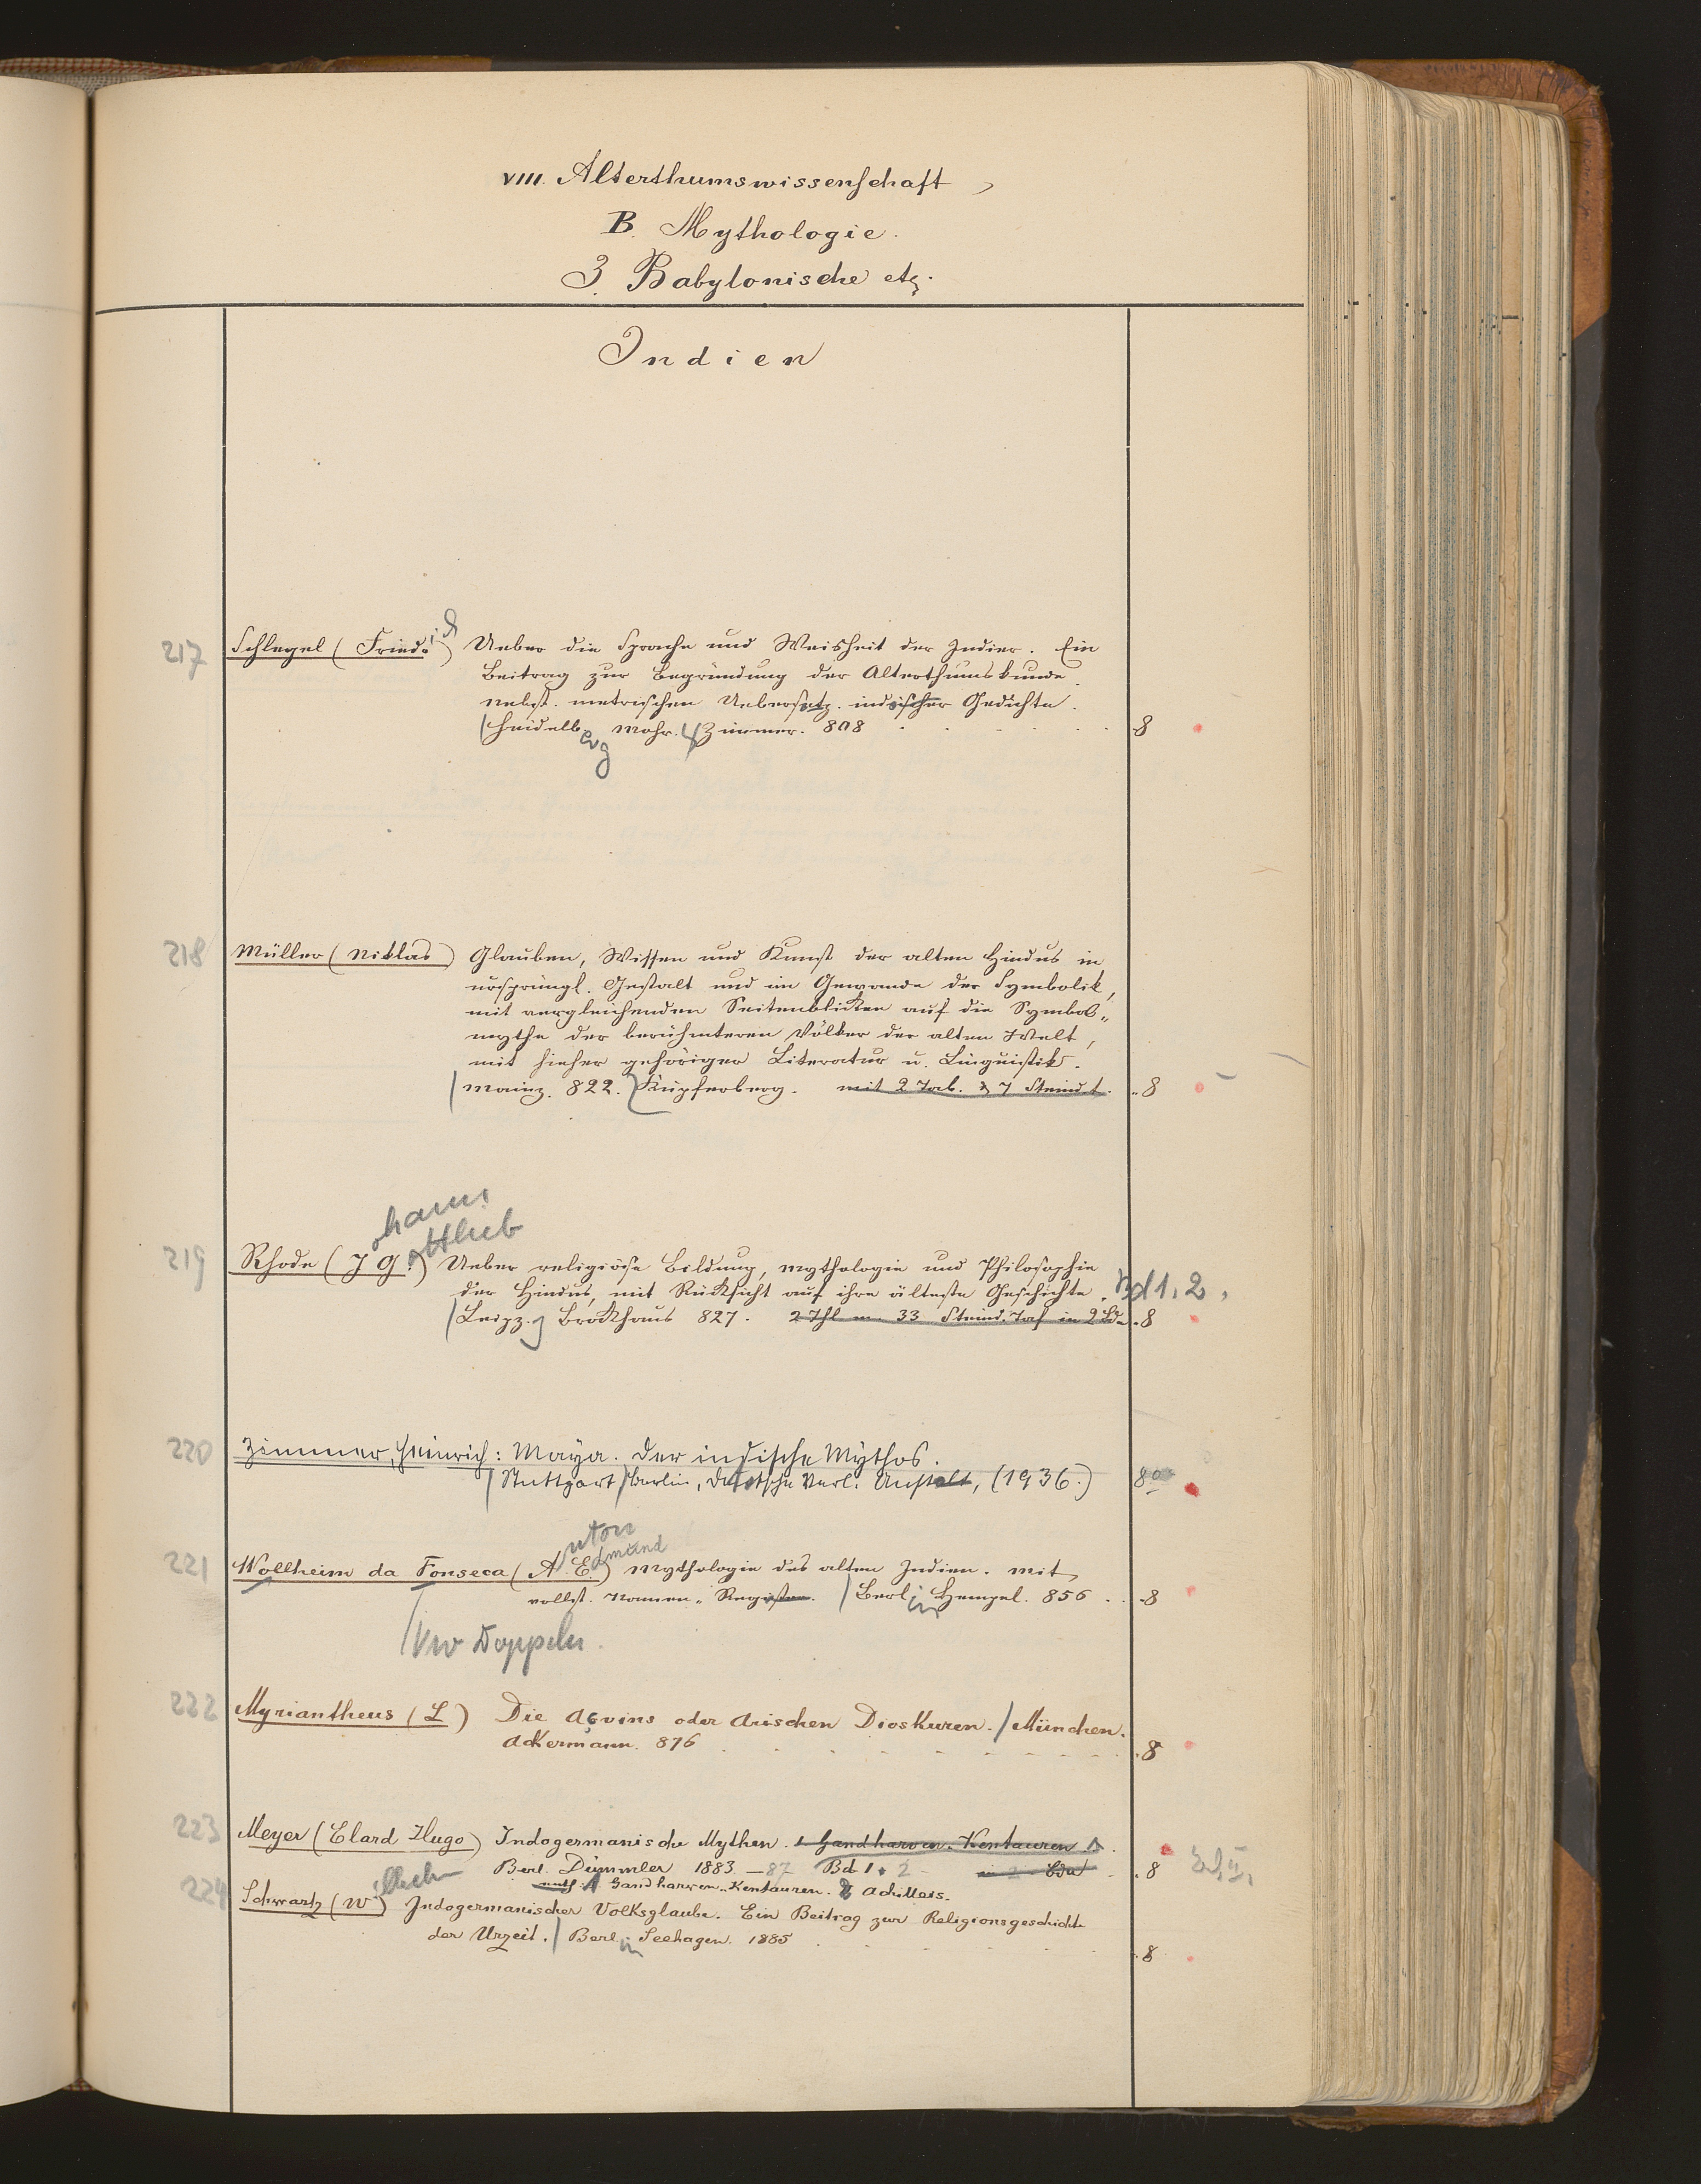 VIII. Alterthumswissenschaft,
B. Mythologie.
3. Babylonische etc.
Indien
217 Schlegel (Friedrich) Ueber die Sprache und Weisheit der Indier. Ein
Beitrag zur Begründung der Alterthumskunde
nebst metrischen Uebersetz. indischer Gedichte.
Heidelberg Mohr. & Zimmer. 808 8
218 Müller (Niklas) Glauben, Wissen und Kunst der alten Hindus in
ursprüngl. Gestalt und im Gewande der Symbolik,
mit vergleichenden Seitenblicken auf die Symbol-
mythe der berühmteren Völker der alten Welt,
mit hieher gehöriger Literatur u. Linguistik.
Mainz. 822. Kupferberg. mit 2 Tab. & 7 Steindt. 8
ohann ottlieb
219 Rhode (J G.) Ueber religiöse Bildung, Mythologie und Philosophie
der Hindus, mit Rücksicht auf ihre älteste Geschichte. Bd 1. 2.
Leipz. Brockhaus 827. 2 Thl m. 33 Steind. Taf in 2 Bde 8
220 Zimmer, Heinrich: Maya. Der indische Mythos.
Stuttgart / Berlin, Deutsche Verl. Anstalt, (1936.) 8°
nton dmund
221 Wollheim da Fonseca (A. E.) Mythologie des alten Indien. Mit
vollst. Namen-Register. Berlin Hempel. 856 8
Doppeln
222 Myriantheus (L) Die Açvins oder Arischen Dioskuren. / München.
Ackermann. 876 8
223 Meyer (Elard Hugo) Indogermanische Mythen. 1 Gandharven-Kentauren
Berl. Dümmler 1883-87 Bd 1. 2 in 2 Bde 8 Bd II,
enth. 1. Gandharven-Kentauren. 2 Achilleis.
224 Schwartz (Wilhelm) Indogermanischer Volksglaube. Ein Beitrag zur Religionsgeschichte
der Urzeit. / Berlin Seehagen. 1885 8